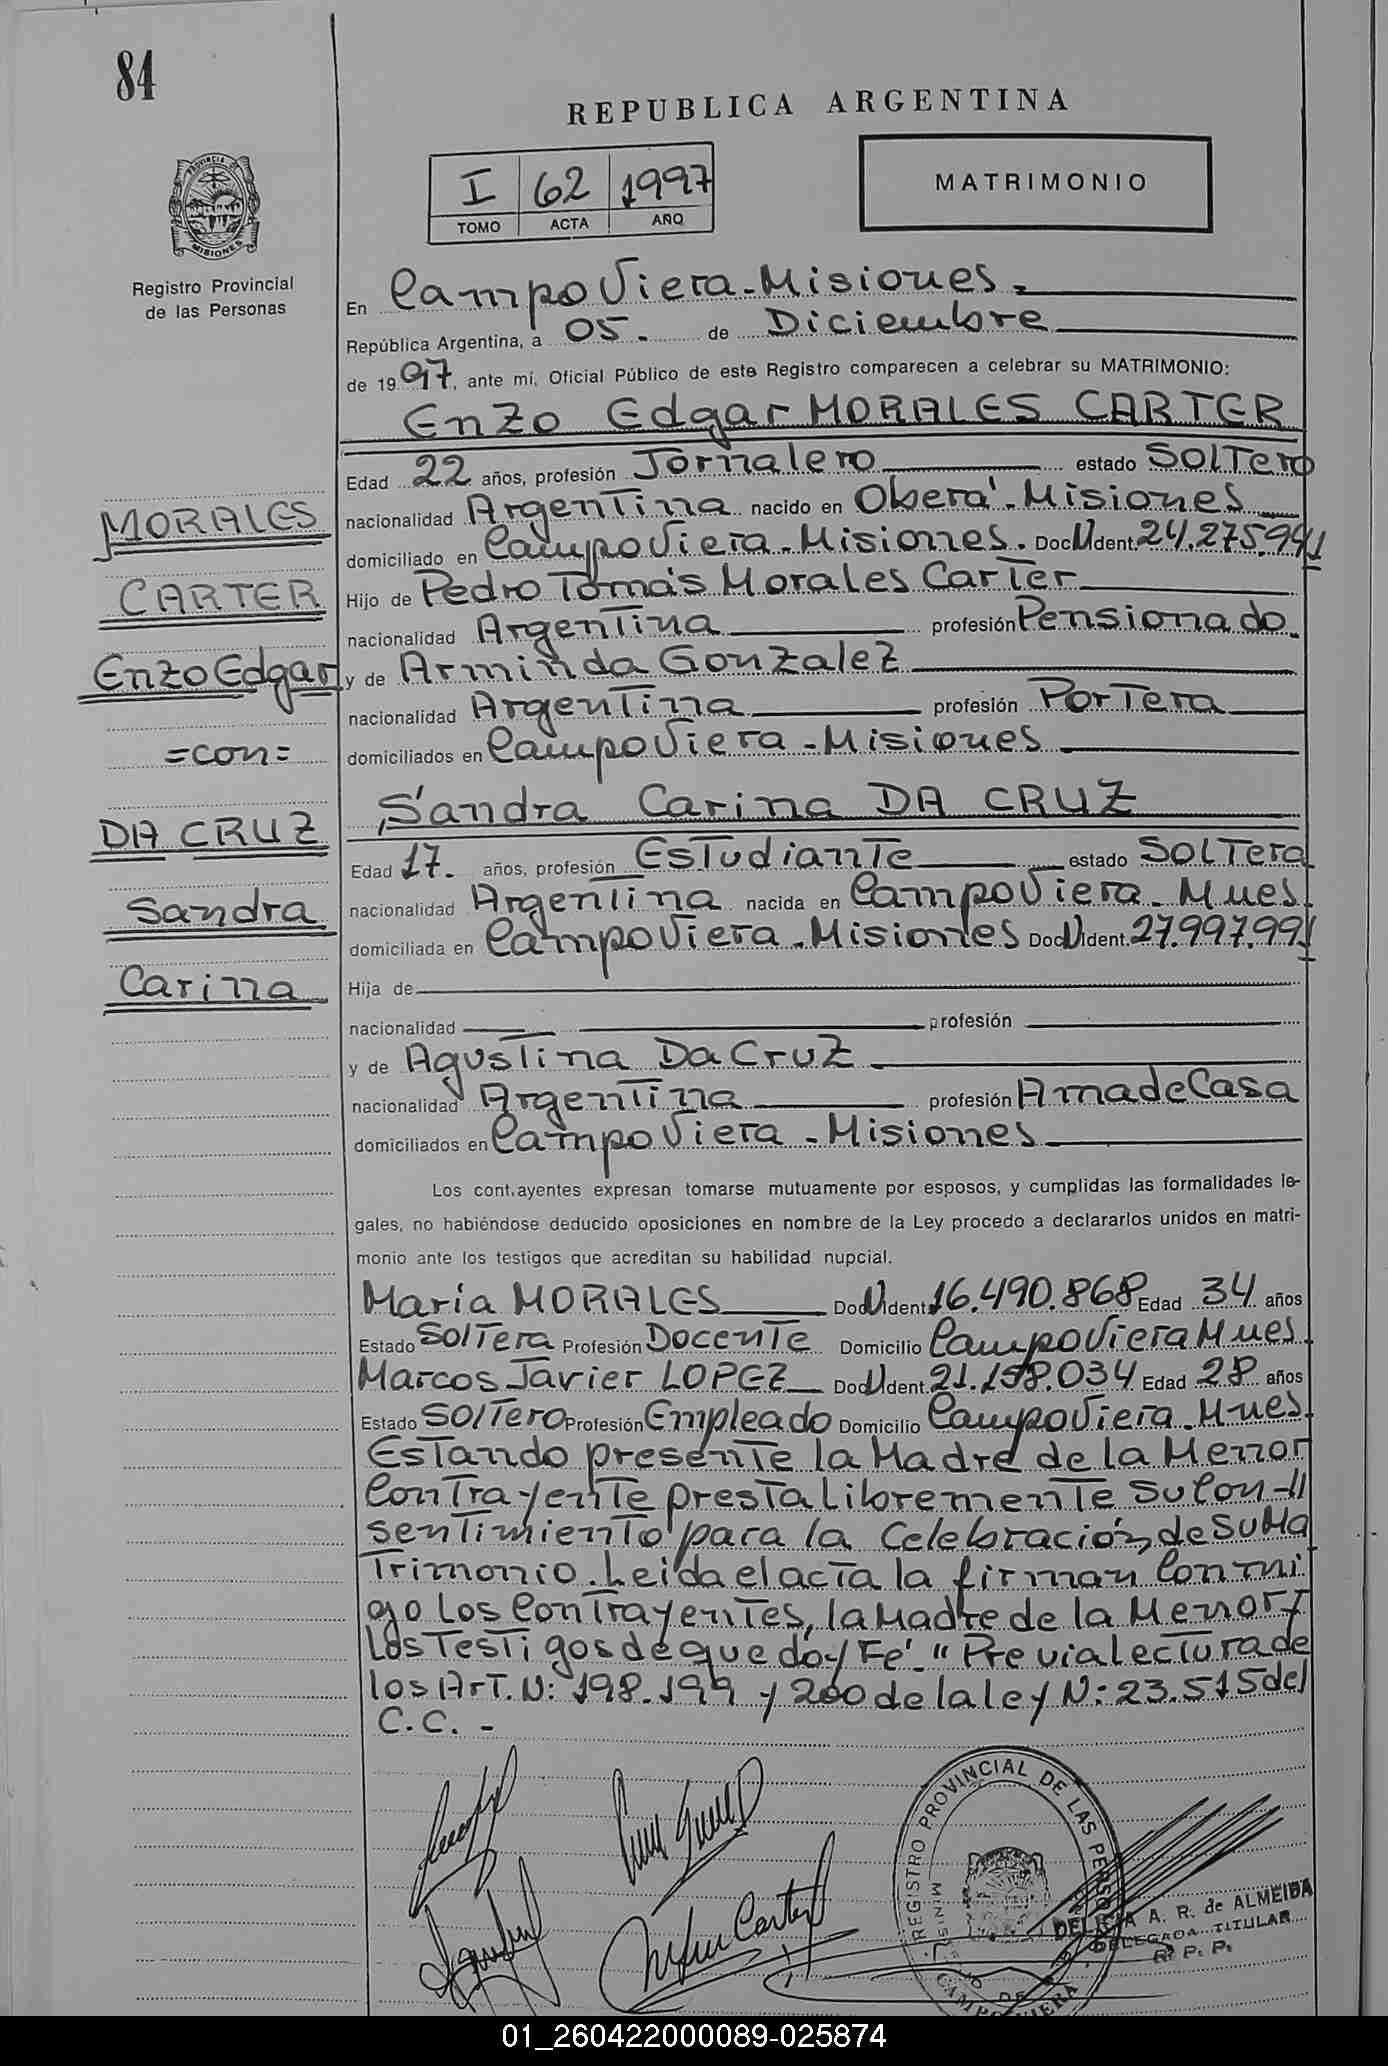 84
REPUBLICA ARGENTINA
I 62 1997
TOMO ACTA AÑO
MATRIMONIO
PROVINCIA DE MISIONES
Registro Provincial
de las Personas
En Campo Viera - Misiones.
República Argentina, a 05. de Diciembre
de 1997, ante mí, Oficial Público de este Registro comparecen a celebrar su MATRIMONIO:
Enzo Edgar MORALES CARTER
Edad 22 años, profesión Jornalero estado Soltero
nacionalidad Argentina nacido en Oberá - Misiones
domiciliado en Campo Viera - Misiones. Doc N Ident. 24.275.991
Hijo de Pedro Tomás Morales Carter
nacionalidad Argentina profesión Pensionado
y de Arminda Gonzalez
nacionalidad Argentina profesión Portera
domiciliados en Campo Viera - Misiones
Sandra Carina DA CRUZ
Edad 17. años, profesión Estudiante estado Soltera
nacionalidad Argentina nacida en Campo Viera - Mnes.
domiciliada en Campo Viera - Misiones Doc N Ident. 27.997.991
Hija de
nacionalidad profesión
y de Agustina Da Cruz
nacionalidad Argentina profesión Ama de Casa
domiciliados en Campo Viera - Misiones
MORALES
CARTER
Enzo Edgar
=con=
DA CRUZ
Sandra
Carina
Los contrayentes expresan tomarse mutuamente por esposos, y cumplidas las formalidades le-
gales, no habiéndose deducido oposiciones en nombre de la Ley procedo a declararlos unidos en matri-
monio ante los testigos que acreditan su habilidad nupcial.
Maria MORALES Doc N Ident. 16.490.868 Edad 34 años
Estado Soltera Profesión Docente Domicilio Campo Viera Mnes.
Marcos Javier LOPEZ Doc N Ident. 21.158.034 Edad 28 años
Estado Soltero Profesión Empleado Domicilio Campo Viera - Mnes.
Estando presente la Madre de la Menor
Contrayente presta Libremente su Con-
sentimiento para la Celebración de su Ma
trimonio. Leida el acta la firman Conmi
go los Contrayentes, la Madre de la Menor y
los Testigos de que doy Fé. "Previa lectura de
los Art. N: 198. 199 y 200 de la ley N: 23.515 del
C.C. -
REGISTRO PROVINCIAL DE LAS PERSONAS
CAMPO VIERA
DELICIA A. R. de ALMEIDA
DELEGADA TITULAR
R. P. P.
01_260422000089-025874